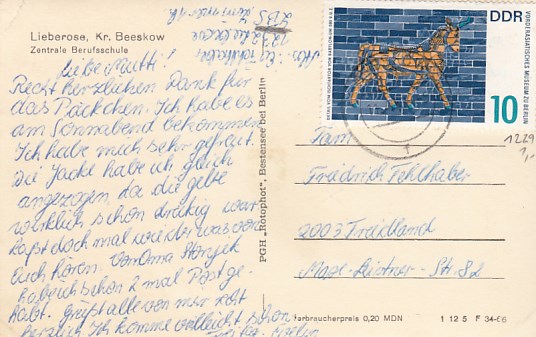 Lieberose, Kr. Beeskow
Zentrale Berufsschule
ZBS
Liebe Mutti!
Recht herzlichen Dank für
das Päckchen. Ich habe es
am Sonnabend bekommen.
Ich habe mich sehr gefreut.
Die Jacke habe ich gleich
angezogen, da die gelbe
wirklich schon dreckig war
Laßt doch mal wieder was von
Euch hören. Von Oma
habe ich schon 2 mal Post ge-
habt. Grüßt alle von mir recht
herzlich Ich komme vielleicht schon
PGH „Rotophot", Bestensee bei Berlin
DDR
VORDERASIATISCHES MUSEUM ZU BERLIN
10
1229
1,-
Fam
Friedrich Fehlhaber
2003 Friedland
Max-Leistner-Str. 82
Verbraucherpreis 0,20 MDN
1 12 5 F 34-66